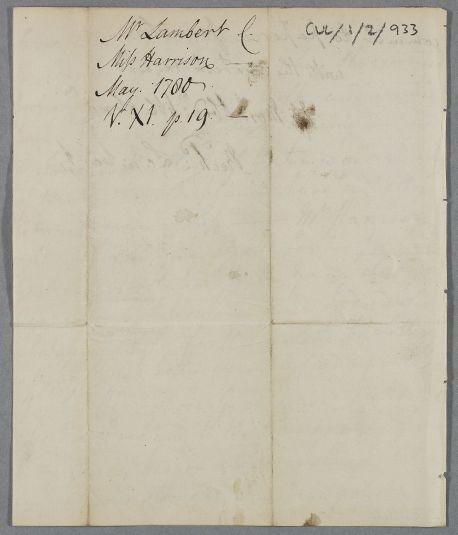 CUL/1/2/933
Mr Lambert C.
Miss Harrison
May. 1780.
V. XI. p 19.